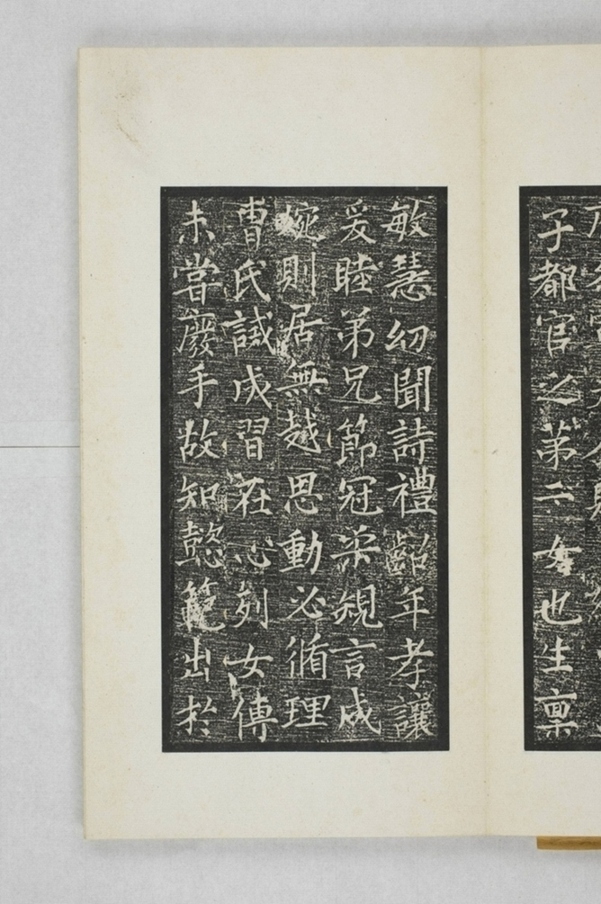 子都官之第二女也生稟
敏慧幼聞詩禮齠年孝讓
爰睦弟兄節冠宗䂓言成
婉則居無越思動必循理
曹氏誡成習在心列女傳
未嘗廢手故知懿範出於